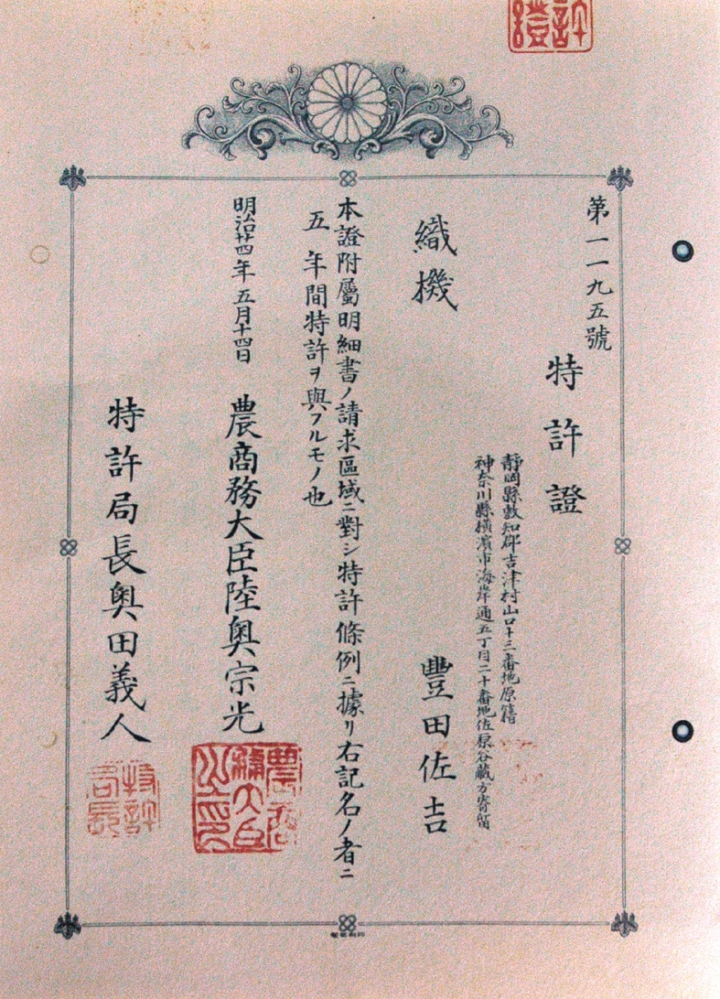 第一一九五號
特許證
靜岡縣敷知郡吉津村山口十三番地原籍
神奈川縣橫濱市海岸通五丁目二十番地佐原谷藏方寄留
豐田佐吉
織機
本證附屬明細書ノ請求區域ニ對シ特許條例ニ據リ右記名ノ者ニ
五年間特許ヲ與フルモノ也
明治廿四年五月十四日
農商務大臣陸奧宗光
農商務大臣之印
特許局長奧田義人
特許局長